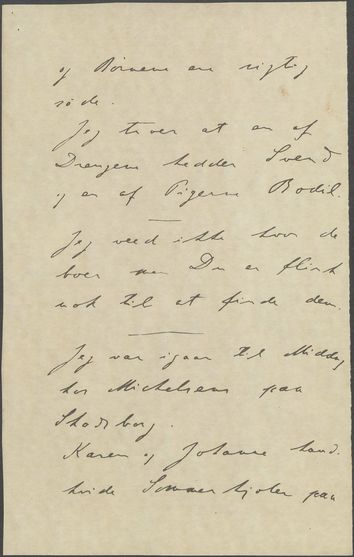 og Børnene ere rigtig
søde.
Jeg troer at en af
Drengene hedder Svend
og en af Pigerne Bodil.
Jeg veed ikke hvor de
boer men Du er flink
nok til at finde dem.
Jeg var igaar til Middag
hos Michelsens paa
Skodsborg.
Karen og Johanne havde
hvide Sommerkjoler paa